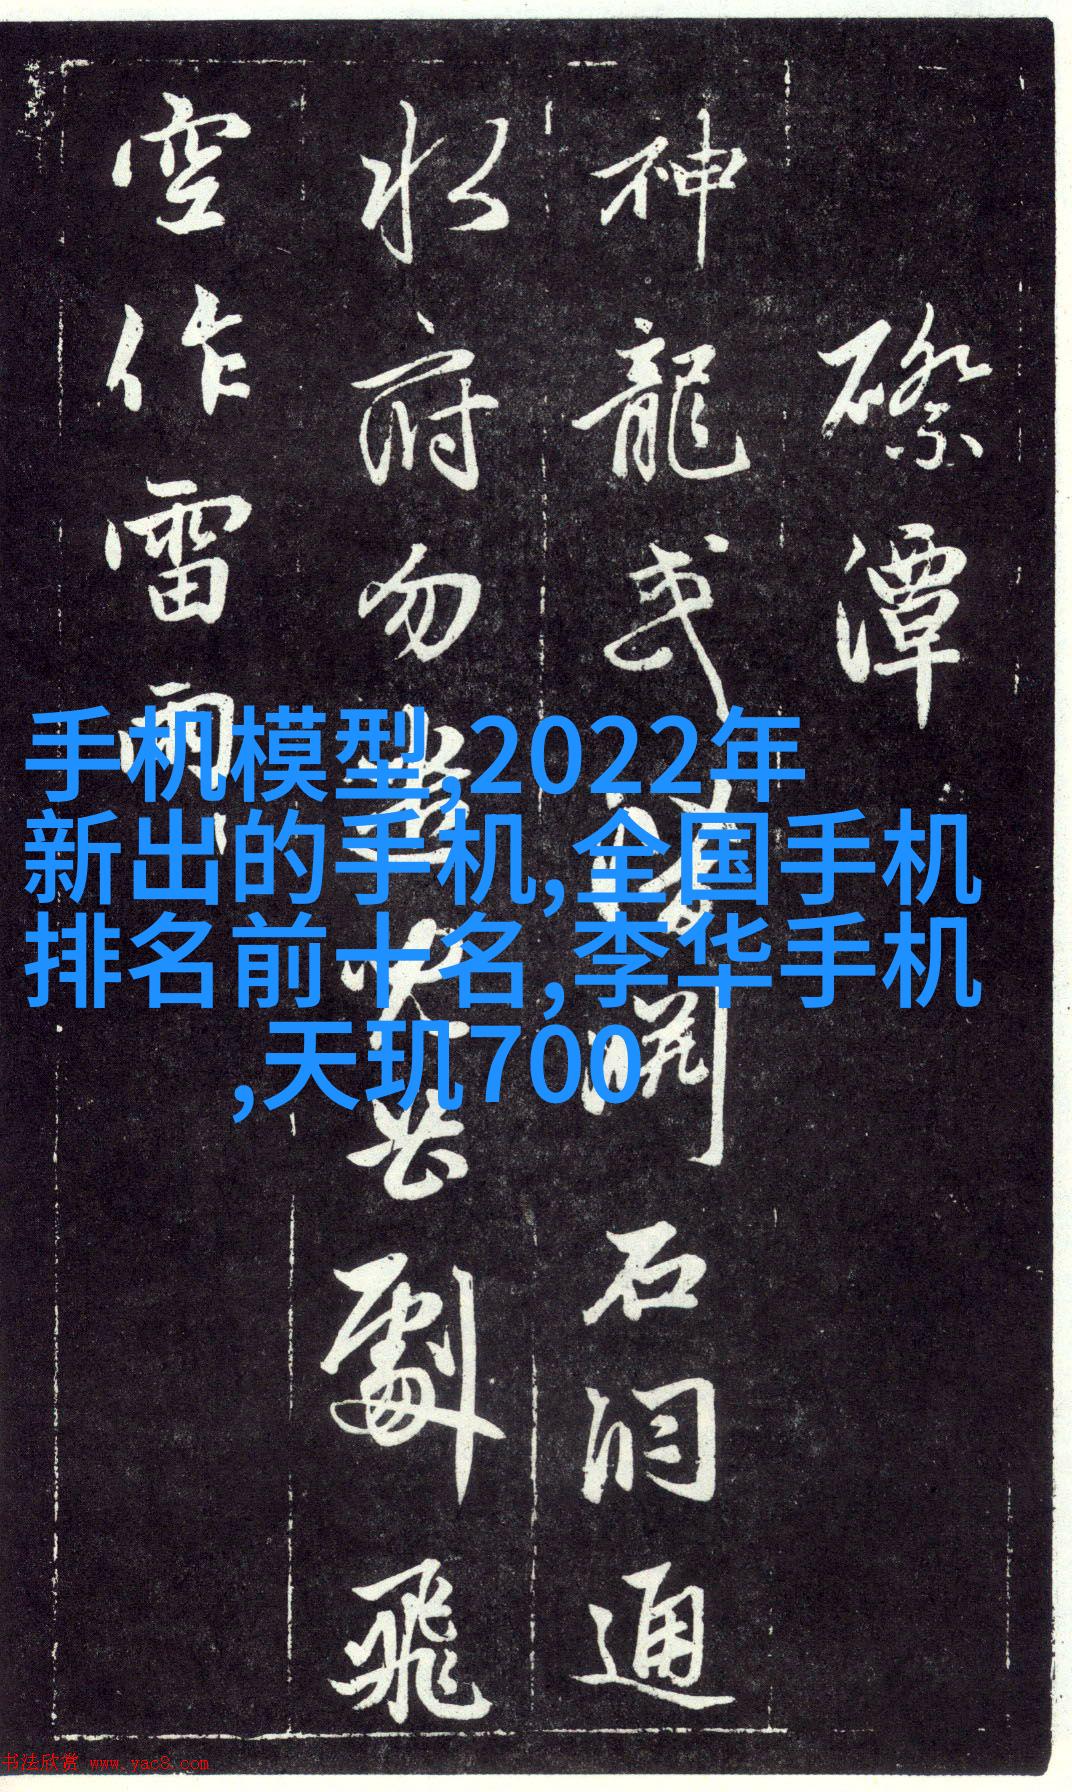 潭
神龍或 石洞通
水府勿 飛
空作雷雨
手机模型,2022年
新出的手机,全国手机
排名前十名,李华手机
,天玑700
书法欣赏 www.yac8.com